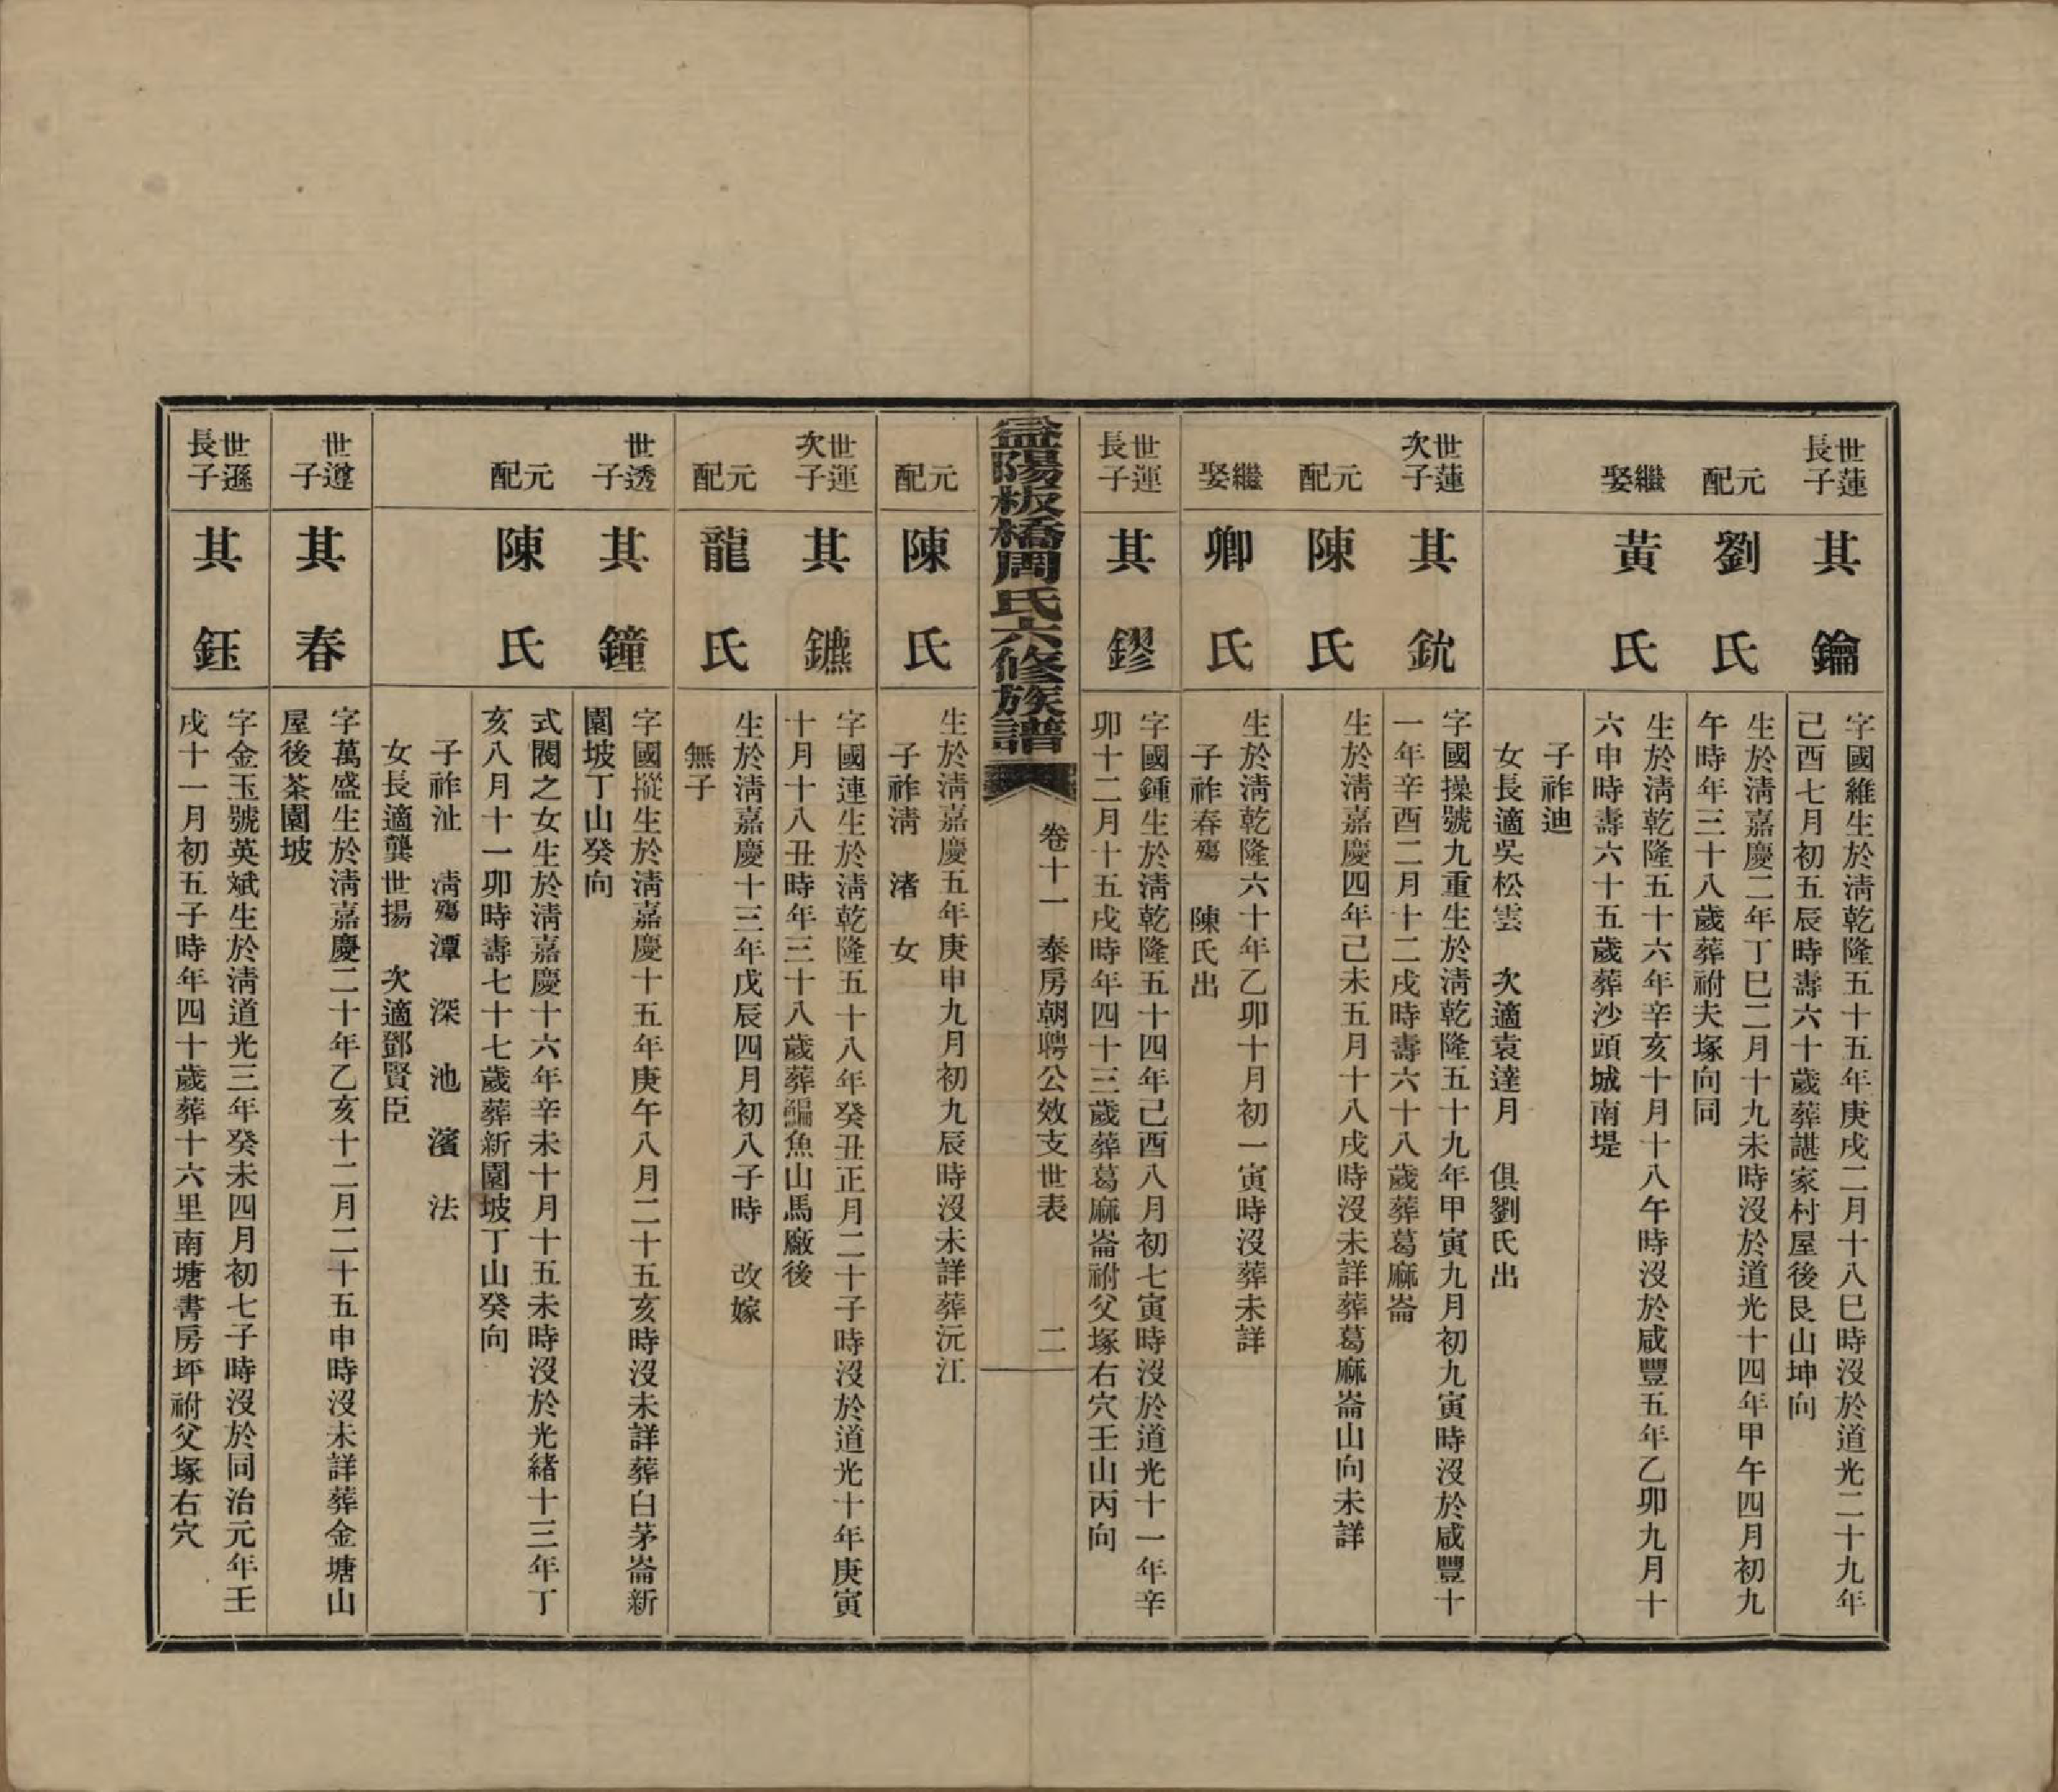 世蓮
長子
其鑰
字國維生於淸乾隆五十五年庚戌二月十八巳時沒於道光二十九年
己酉七月初五辰時壽六十歲葬諶家村屋後艮山坤向
元配
劉氏
生於淸嘉慶二年丁巳二月十九未時沒於道光十四年甲午四月初九
午時年三十八歲葬祔夫塚向同
繼娶
黃氏
生於淸乾隆五十六年辛亥十月十八午時沒於咸豐五年乙卯九月十
六申時壽六十五歲葬沙頭城南堤
子祚迪
女長適吳松雲 次適袁達月 俱劉氏出
世蓮
次子
其鈗
字國操號九重生於淸乾隆五十九年甲寅九月初九寅時沒於咸豐十
一年辛酉二月十二戌時壽六十八歲葬葛麻崙
元配
陳氏
生於淸嘉慶四年己未五月十八戌時沒未詳葬葛麻崙山向未詳
繼娶
卿氏
生於淸乾隆六十年乙卯十月初一寅時沒葬未詳
子祚春殤 陳氏出
世運
長子
其鏐
字國鍾生於淸乾隆五十四年己酉八月初七寅時沒於道光十一年辛
卯十二月十五戌時年四十三歲葬葛麻崙祔父塚右穴壬山丙向
益陽板橋周氏六修族譜
卷十一 泰房朝聘公效支世表 二
元配
陳氏
生於淸嘉慶五年庚申九月初九辰時沒未詳葬沅江
子祚淸 渚 女
世運
次子
其鑣
字國連生於淸乾隆五十八年癸丑正月二十子時沒於道光十年庚寅
十月十八丑時年三十八歲葬鯿魚山馬廠後
元配
龍氏
生於淸嘉慶十三年戊辰四月初八子時 改嫁
無子
世透
子
其鐘
字國摐生於淸嘉慶十五年庚午八月二十五亥時沒未詳葬白茅崙新
園坡丁山癸向
元配
陳氏
式閣之女生於淸嘉慶十六年辛未十月十五未時沒於光緒十三年丁
亥八月十一卯時壽七十七歲葬新園坡丁山癸向
子祚沚 淸殤 潭 深 池 濱 法
女長適龔世揚 次適鄧賢臣
世遵
子
其春
字萬盛生於淸嘉慶二十年乙亥十二月二十五申時沒未詳葬金塘山
屋後茶園坡
世遜
長子
其鈺
字金玉號英斌生於淸道光三年癸未四月初七子時沒於同治元年壬
戌十一月初五子時年四十歲葬十六里南塘書房坪祔父塚右穴